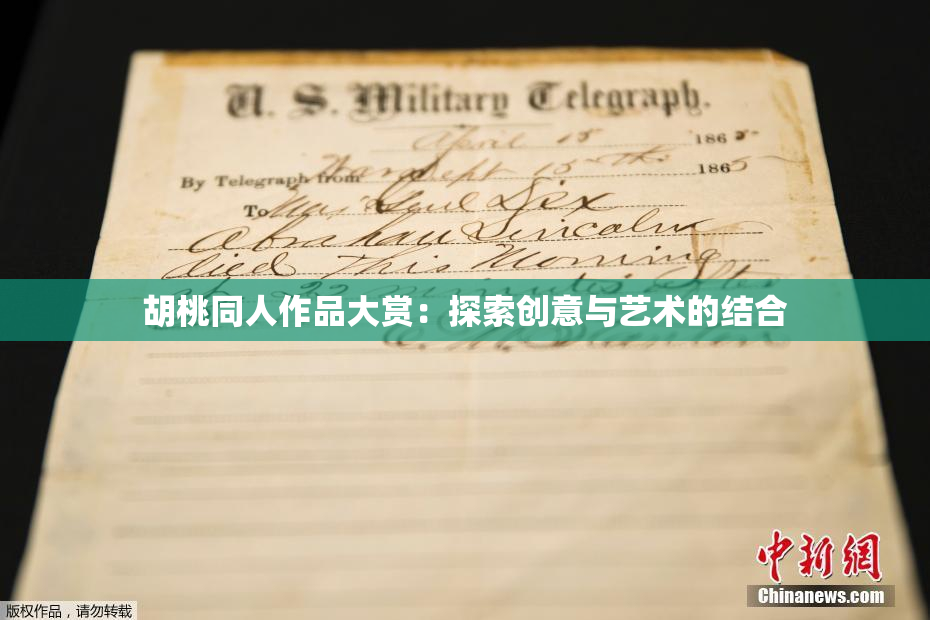 U. S. Military Telegraph.
April 15 1865-
By Telegraph from War Dept 15th 1865
To Maj Genl Dix
Abraham Lincoln
died This Morning
at 22 minutes after
胡桃同人作品大赏：探索创意与艺术的结合
E. M. Stanton
中新网
Chinanews.com
版权作品，请勿转载